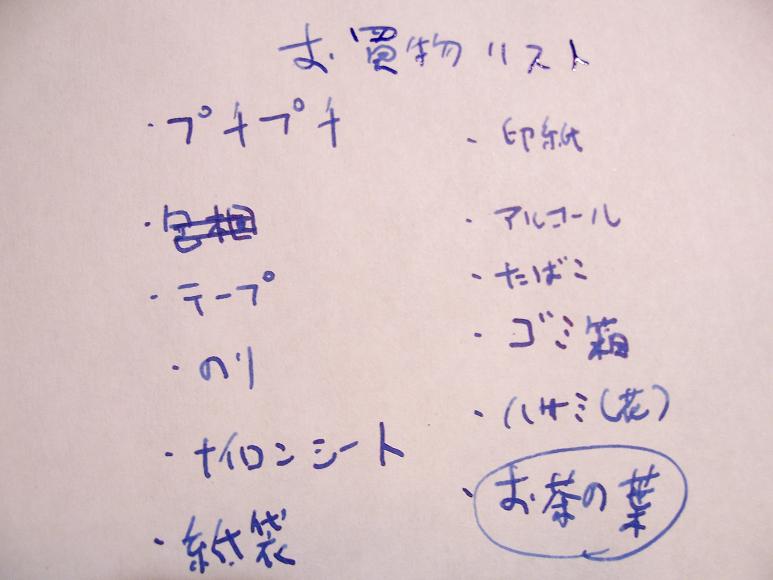 お買物リスト
・プチプチ
・テープ
・のり
・ナイロンシート
・紙袋
・印紙
・アルコール
・たばこ
・ゴミ箱
・ハサミ(花)
・お茶の葉